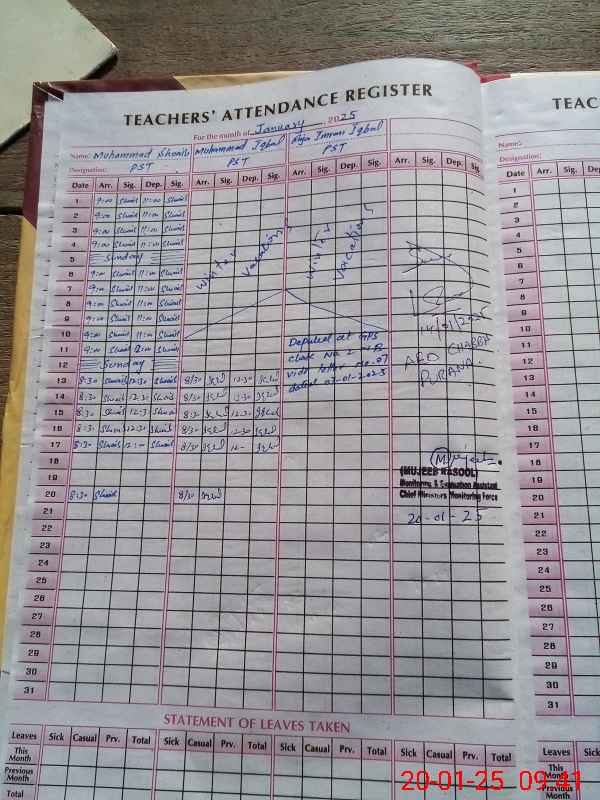 TEACHERS' ATTENDANCE REGISTER
For the month of January 2025
Name: Muhammad Shoaib Muhammad Iqbal Raja Imran Iqbal
Designation: PST PST PST
Date Arr. Sig. Dep. Sig. Arr. Sig. Dep. Sig. Arr. Sig. Dep. Sig. Arr. Sig. Dep. Sig.
1 9:00 11:00
2 9:00 11:00
3 9:00 11:00
4 9:00 11:00
5 Sunday
6 9:00 11:00
7 9:00 11:00
8 9:00 11:00
9 9:00 11:00
10 9:00 11:00
11 9:00 12:00
12 Sunday
winter vacations
winter vacations
Deputed at GPS
vide letter No. 07
dated 07-01-2025
13 8:30 12:30 8/30 12-30
14 8:30 12:30 8/30 12-30
15 8:30 12:30 8/30 12-30
16 8:30 12:30 8/30 12-30
17 8:30 12:00 8/30 12-
18
19
20 8:30 8/30
21
22
23
24
25
26
27
28
29
30
31
14/01/2025
AEO CHABBA
PURANA.
(MUJEEB RASOOL)
Monitoring & Evaluation Assistant
Chief Ministers Monitoring Force
20-01-25
STATEMENT OF LEAVES TAKEN
Leaves Sick Casual Prv. Total Sick Casual Prv. Total Sick Casual Prv. Total Sick Casual Prv. Total
This Month
Previous Month
Total
TEAC
Name:
Designation:
Date Arr. Sig.
1
2
3
4
5
6
7
8
9
10
11
12
13
14
15
16
17
18
19
20
21
22
23
24
25
26
27
28
29
30
31
Leaves Sick
This Month
Previous Month
20-01-25 09:41